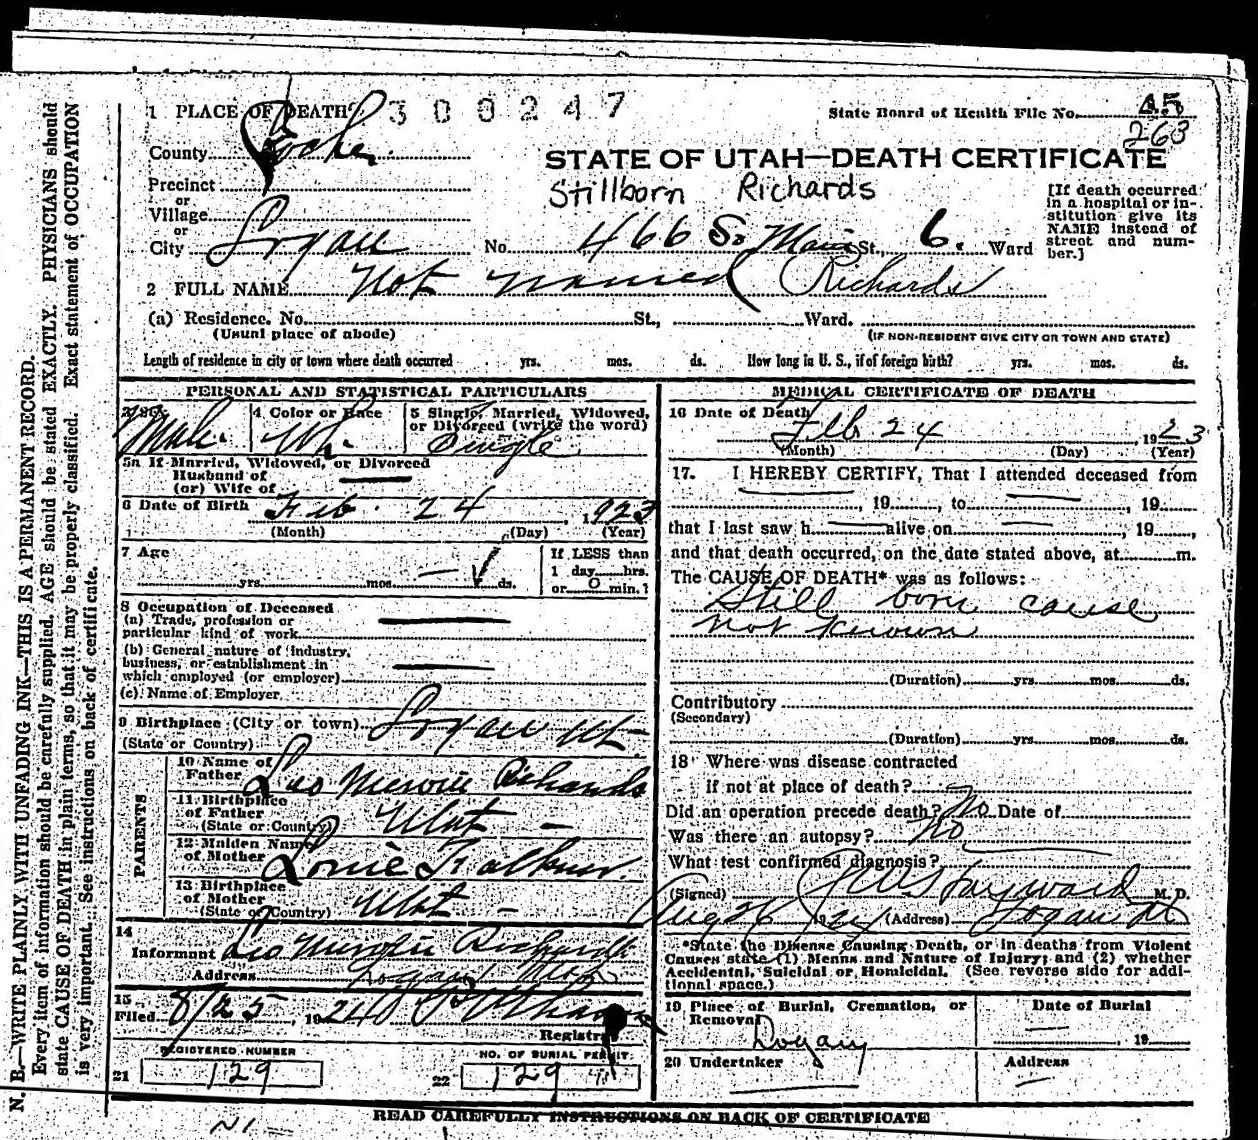 1 PLACE OF DEATH 300247 State Board of Health File No. 45
263
County Cache
STATE OF UTAH—DEATH CERTIFICATE
Precinct
or
Village
or
City Logan No. 466 So Main St. 6. Ward
Stillborn Richards
[If death occurred
in a hospital or in-
stitution give its
NAME instead of
street and num-
ber.]
2 FULL NAME Not named Richards
(a) Residence. No. St., Ward.
(Usual place of abode) (IF NON-RESIDENT GIVE CITY OR TOWN AND STATE)
Length of residence in city or town where death occurred yrs. mos. ds. How long in U. S., if of foreign birth? yrs. mos. ds.
PERSONAL AND STATISTICAL PARTICULARS
3 Sex Male
4 Color or Race Wh.
5 Single, Married, Widowed,
or Divorced (write the word)
Single
5a If Married, Widowed, or Divorced
Husband of
(or) Wife of
6 Date of Birth Feb. 24 1923
(Month) (Day) (Year)
7 Age
yrs. mos. ds.
If LESS than
1 day hrs.
or 0 min.?
8 Occupation of Deceased
(a) Trade, profession or
particular kind of work
(b) General nature of industry,
business, or establishment in
which employed (or employer)
(c) Name of Employer
9 Birthplace (City or town) Logan Ut.
(State or Country)
PARENTS
10 Name of
Father Leo Richards
11 Birthplace
of Father
(State or Country) Utah
12 Maiden Name
of Mother
13 Birthplace
of Mother
(State or Country) Utah
14
Informant Leo Richards
Address Logan Utah
15
Filed 8/25, 1924
Registrar
REGISTERED NUMBER
21 129
NO. OF BURIAL PERMIT
22 129
MEDICAL CERTIFICATE OF DEATH
16 Date of Death
Feb 24 1923
(Month) (Day) (Year)
17. I HEREBY CERTIFY, That I attended deceased from
, 19, to , 19,
that I last saw h alive on , 19,
and that death occurred, on the date stated above, at m.
The CAUSE OF DEATH* was as follows:
Still born cause
not known
(Duration) yrs. mos. ds.
Contributory
(Secondary)
(Duration) yrs. mos. ds.
18 Where was disease contracted
If not at place of death?
Did an operation precede death? No Date of
Was there an autopsy? No
What test confirmed diagnosis?
(Signed) Hayward M. D.
Aug 26 1924 (Address) Logan Ut
*State the Disease Causing Death, or in deaths from Violent
Causes state (1) Means and Nature of Injury; and (2) whether
Accidental, Suicidal or Homicidal. (See reverse side for addi-
tional space.)
19 Place of Burial, Cremation, or
Removal
Logan
Date of Burial
, 19
20 Undertaker
Address
READ CAREFULLY INSTRUCTIONS ON BACK OF CERTIFICATE
N. B.—WRITE PLAINLY WITH UNFADING INK—THIS IS A PERMANENT RECORD.
Every item of information should be carefully supplied. AGE should be stated EXACTLY. PHYSICIANS should
state CAUSE OF DEATH in plain terms, so that it may be properly classified. Exact statement of OCCUPATION
is very important. See instructions on back of certificate.